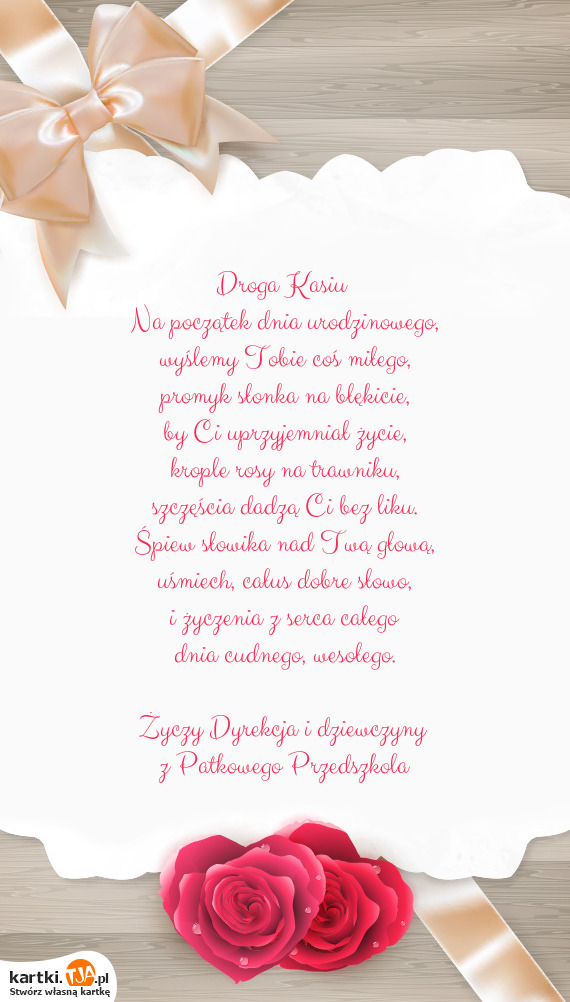 Droga Kasiu
Na początek dnia urodzinowego,
wyślemy Tobie coś miłego,
promyk słonka na błękicie,
by Ci uprzyjemniał życie,
krople rosy na trawniku,
szczęścia dadzą Ci bez liku.
Śpiew słowika nad Twą głową,
uśmiech, całus dobre słowo,
i życzenia z serca całego
dnia cudnego, wesołego.
Życzy Dyrekcja i dziewczyny
z Patkowego Przedszkola
kartki.TJA.pl
Stwórz własną kartkę